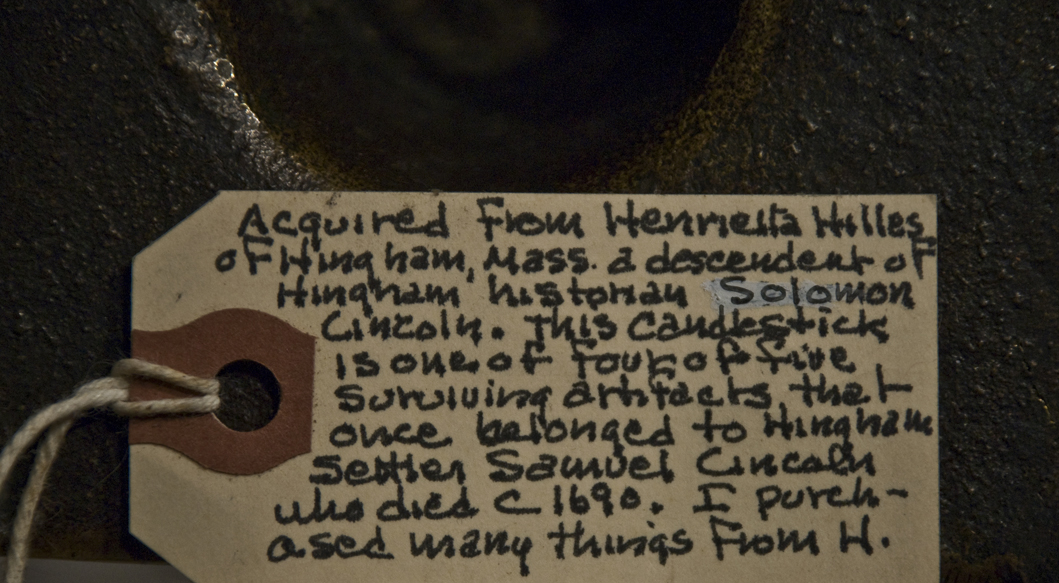 Acquired From Henrietta Hilles
of Hingham, Mass. a descendent of
Hingham historian Solomon
Lincoln. This candlestick
is one of four of five
surviving artifacts that
once belonged to Hingham
settler Samuel Lincoln
who died c 1690. I purch-
ased many things From H.